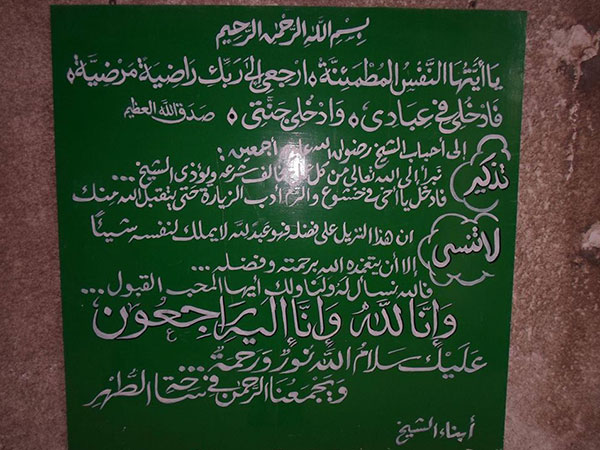 بسم الله الرحمن الرحيم
يا أيتها النفس المطمئنة ارجعي إلى ربك راضية مرضية
فادخلي في عبادي وادخلي جنتي صدق الله العظيم
إلى أحباب الشيخ رضوان الله عليهم أجمعين:
تذكير
نبرأ إلى الله تعالى من كل مخالف شرعه ويؤذى الشيخ...
فادخل يا أخى فى خشوع والتزم أدب الزيارة حتى يتقبل الله منك
لا تنسى
ان هذا النزيل على فضله فهو عبد لله لا يملك لنفسه شيئاً
إلا أن يتغمده الله برحمته وفضله...
فالله نسأل له ولنا ولك أيها المحب القبول...
وإنا لله وإنا إليه راجعون
عليك سلام الله نور ورحمة...
ويجمعنا الرحمن فى ساحة الطهر
أبناء الشيخ